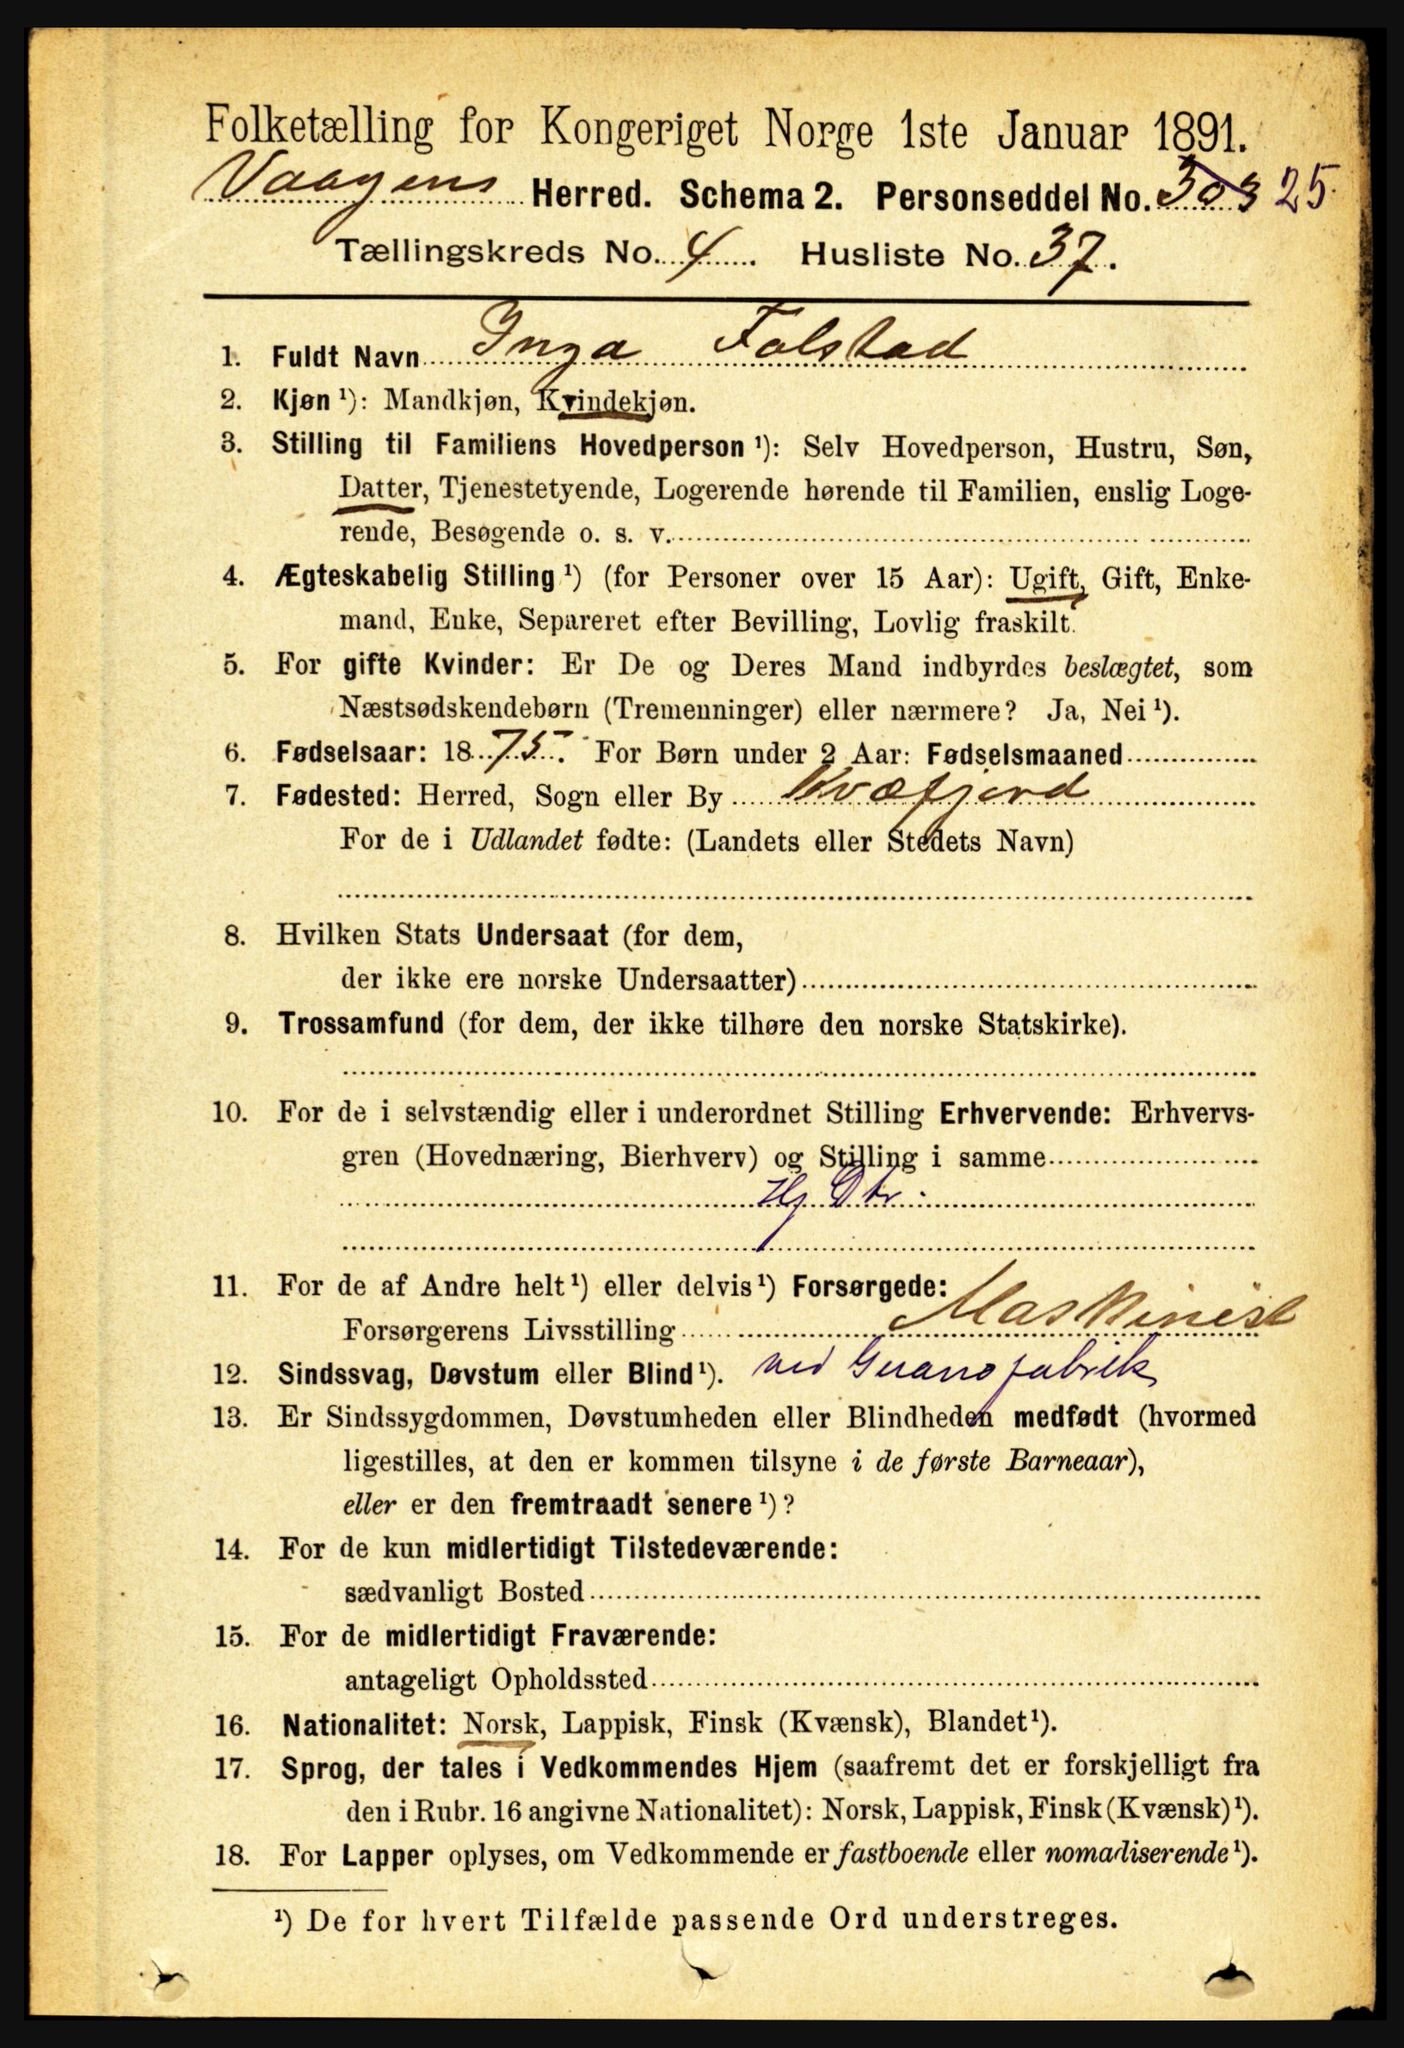 Folketælling for Kongeriget Norge 1ste Januar 1891.
Vaagens Herred. Schema 2. Personseddel No. 303 25
Tællingskreds No. 4. Husliste No. 37.
1. Fuldt Navn Inga Folstad
2. Kjøn ¹): Mandkjøn, Kvindekjøn.
3. Stilling til Familiens Hovedperson ¹): Selv Hovedperson, Hustru, Søn,
Datter, Tjenestetyende, Logerende hørende til Familien, enslig Loge-
rende, Besøgende o. s. v.
4. Ægteskabelig Stilling ¹) (for Personer over 15 Aar): Ugift, Gift, Enke-
mand, Enke, Separeret efter Bevilling, Lovlig fraskilt.
5. For gifte Kvinder: Er De og Deres Mand indbyrdes beslægtet, som
Næstsødskendebørn (Tremenninger) eller nærmere? Ja, Nei ¹).
6. Fødselsaar: 1875. For Børn under 2 Aar: Fødselsmaaned
7. Fødested: Herred, Sogn eller By Kvæfjord
For de i Udlandet fødte: (Landets eller Stedets Navn)
8. Hvilken Stats Undersaat (for dem,
der ikke ere norske Undersaatter)
9. Trossamfund (for dem, der ikke tilhøre den norske Statskirke).
10. For de i selvstændig eller i underordnet Stilling Erhvervende: Erhvervs-
gren (Hovednæring, Bierhverv) og Stilling i samme
Hj Dtr.
11. For de af Andre helt ¹) eller delvis ¹) Forsørgede:
Forsørgerens Livsstilling Maskinist
12. Sindssvag, Døvstum eller Blind ¹). ved Guanofabrik
13. Er Sindssygdommen, Døvstumheden eller Blindheden medfødt (hvormed
ligestilles, at den er kommen tilsyne i de første Barneaar),
eller er den fremtraadt senere ¹)?
14. For de kun midlertidigt Tilstedeværende:
sædvanligt Bosted
15. For de midlertidigt Fraværende:
antageligt Opholdssted
16. Nationalitet: Norsk, Lappisk, Finsk (Kvænsk), Blandet ¹).
17. Sprog, der tales i Vedkommendes Hjem (saafremt det er forskjelligt fra
den i Rubr. 16 angivne Nationalitet): Norsk, Lappisk, Finsk (Kvænsk) ¹).
18. For Lapper oplyses, om Vedkommende er fastboende eller nomadiserende ¹).
¹) De for hvert Tilfælde passende Ord understreges.